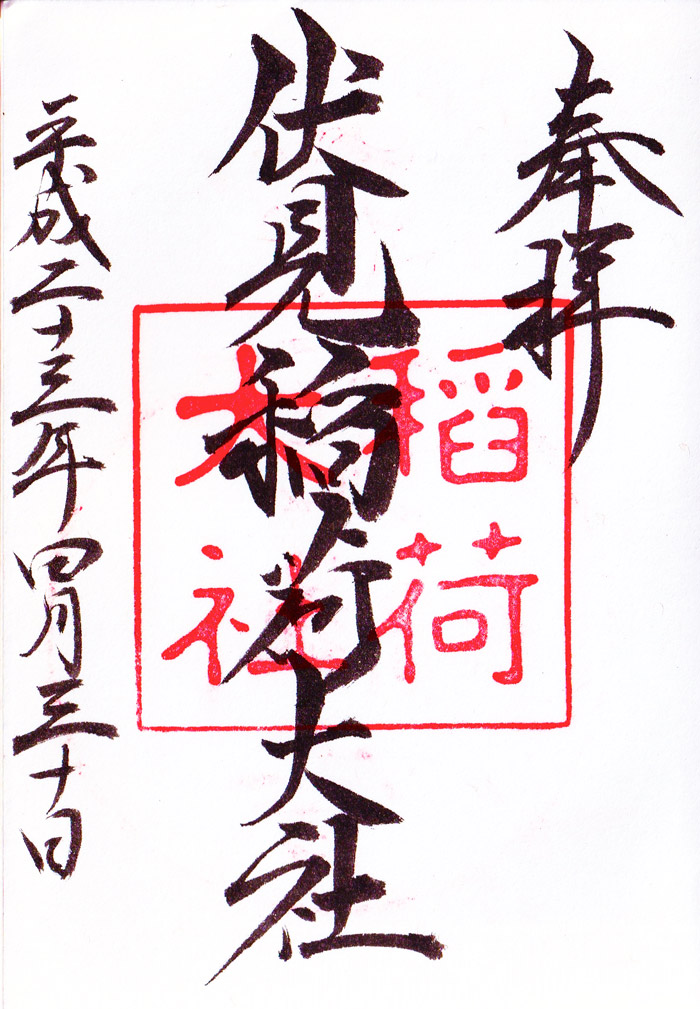 奉拝
稲荷
大社
伏見稲荷大社
平成二十三年四月三十日